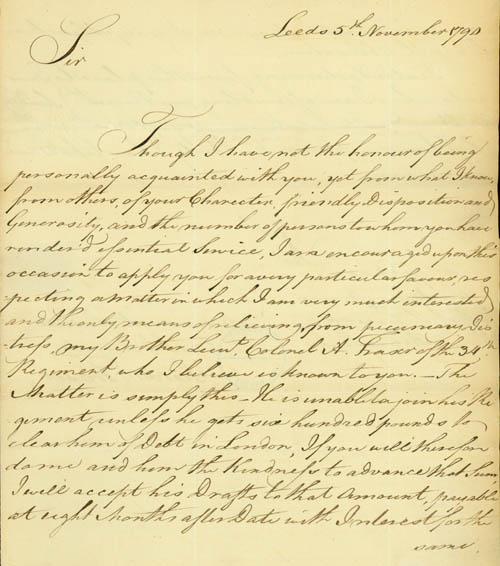 Leeds 5th. November 1790
Sir
Though I have not the honour of being
personally acquainted with you, yet from what I know,
from others, of your Charecter, friendly Disposition and
Generosity, and the number of persons to whom you have
render'd essential Service, I am encouraged upon this
occasion to apply you for a very particular favour, res
=pecting a Matter in which I am very much interested
and the only means of relieving from pecuniary Dis
=tress, my Brother Lieut. Colonel A. Fraser of the 34th.
Regiment, who I believe is known to you. — The
Matter is simply this — He is unable to join his Re
giment, unless he gets six hundred pounds to
clear him of Debt in London, If you will therefore
do me and him the Kindness to advance that Sum,
I will accept his Drafts to that Amount, payable
at eight Months after Date with Interest for the
same.